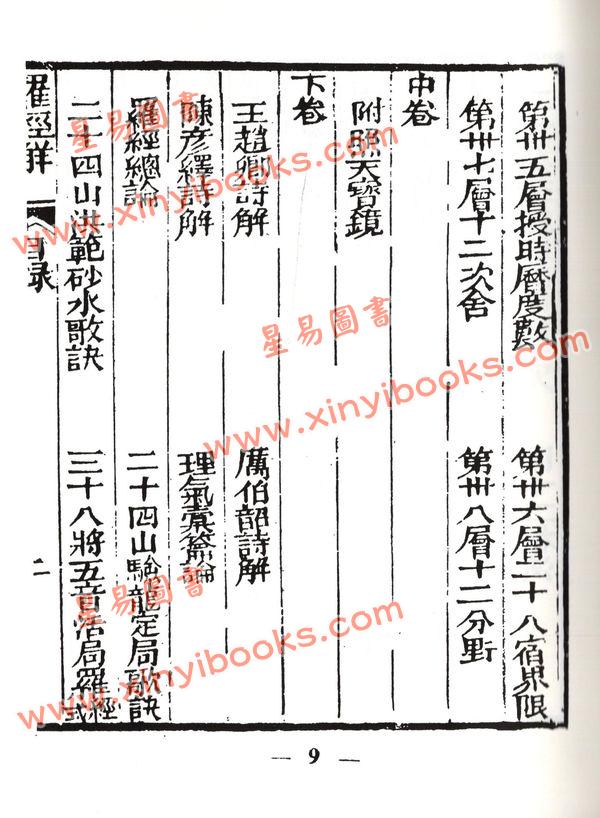 第卅五層授時曆度數　第卅六層二十八宿界限
第卅七層十二次舍　第卅八層十二分野
中卷
附照天寶鏡
下卷
王趙卿詩解　厲伯韶詩解
陳彥繹詩解　理氣橐籥論
羅經總論　二十四山騐龍定局歌訣
二十四山洪範砂水歌訣　三十八將五音活局羅經式
羅經觧　目录　二
— 9 —
星易圖書
www.xinyibooks.com
星易圖書
www.xinyibooks.com
星易圖書
www.xinyibooks.com